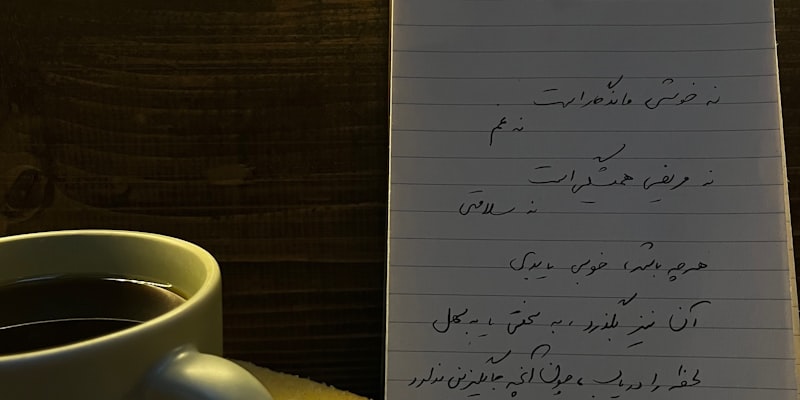 نه خوشی ماندگار است
نه غم
نه مریضی همیشگی است
نه سلامتی
هرچه باشد، خوبی یا بدی
آن نیز بگذرد، به سختی یا به سهل
لحظه را دریاب، چون آنچه جایگزینی ندارد